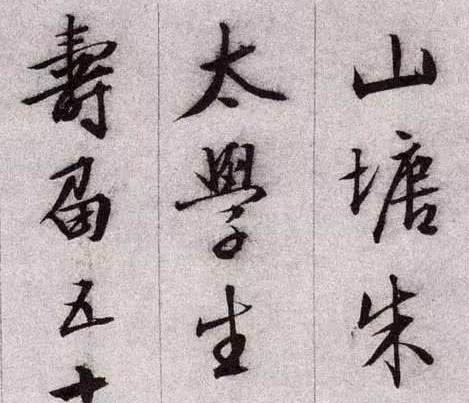 山塘朱
太學生
壽届五十